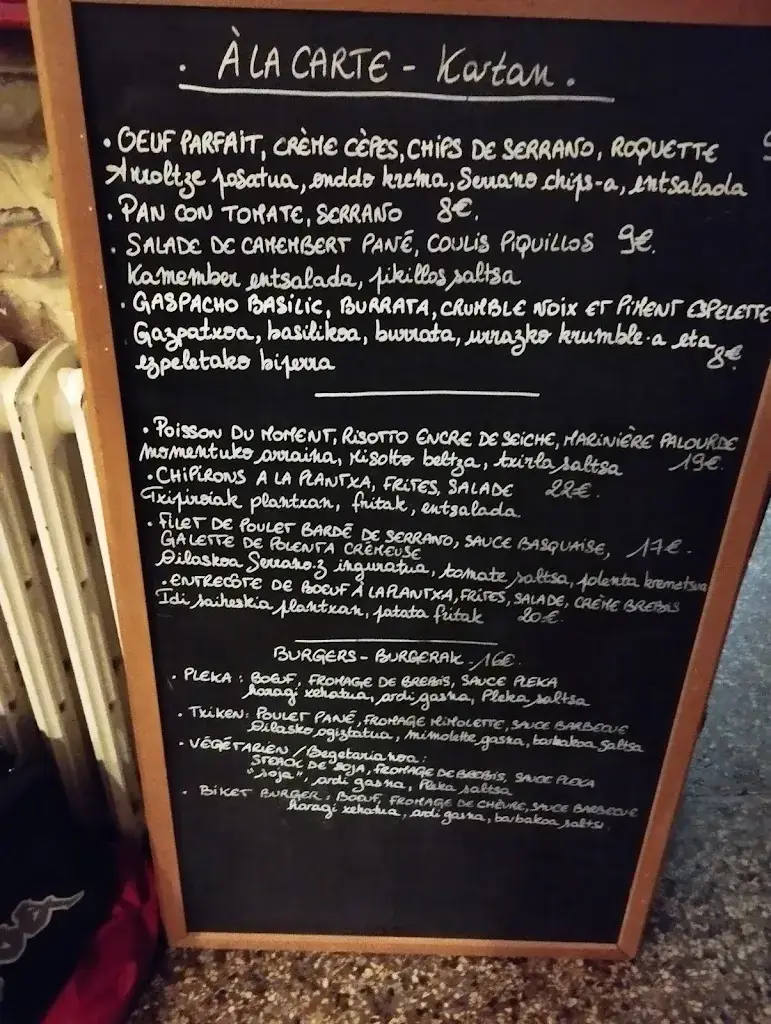 . À LA CARTE - Kartan .
• OEUF PARFAIT, CRÈME CÈPES, CHIPS DE SERRANO, ROQUETTE
Arroltze posatua, onddo krema, Serrano chips-a, entsalada
• PAN CON TOMATE, SERRANO 8€.
• SALADE DE CAMEMBERT PANÉ, COULIS PIQUILLOS 9€.
Kamember entsalada, pikillos saltsa
• GASPACHO BASILIC, BURRATA, CRUMBLE NOIX ET PIMENT ESPELETTE
Gazpatxoa, basilikoa, burrata, urrazko krumble-a eta 8€
ezpeletako biperra
• POISSON DU MOMENT, RISOTTO ENCRE DE SEICHE, MARINIÈRE PALOURDE
momentuko arraina, Risotto beltza, txirla saltsa 19€.
• CHIPIRONS A LA PLANTXA, FRITES, SALADE 22€.
Txipiroiak plantxan, fritak, entsalada
• FILET DE POULET BARDÉ DE SERRANO, SAUCE BASQUAISE, 17€.
GALETTE DE POLENTA CRÉMEUSE
Oilaskoa Serranoz inguratua, tomate saltsa, polenta krematsua
• ENTRECÔTE DE BOEUF À LA PLANTXA, FRITES, SALADE, CRÈME BREBIS
Idi saiheskia plantxan, patata fritak 20€.
BURGERS - BURGERAK - 16€.
• PLEKA : BOEUF, FROMAGE DE BREBIS, SAUCE PLEKA
haragi xehatua, ardi gasna, Pleka saltsa
• TXIKEN : POULET PANÉ, FROMAGE MIMOLETTE, SAUCE BARBECUE
Oilasko ogiztatua, mimolette gasna, barbakoa saltsa
• VÉGÉTARIEN / Begetarianoa :
STEACK DE SOJA, FROMAGE DE BREBIS, SAUCE PLEKA
"soja", ardi gasna, Pleka saltsa
• BIKET BURGER : BOEUF, FROMAGE DE CHÈVRE, SAUCE BARBECUE
haragi xehatua, ardi gasna, barbakoa saltsa.